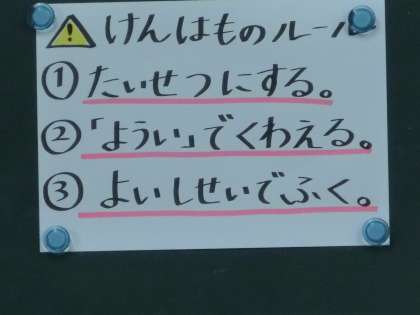 ⚠けんはものルール
①たいせつにする。
②「ようい」でくわえる。
③よいしせいでふく。